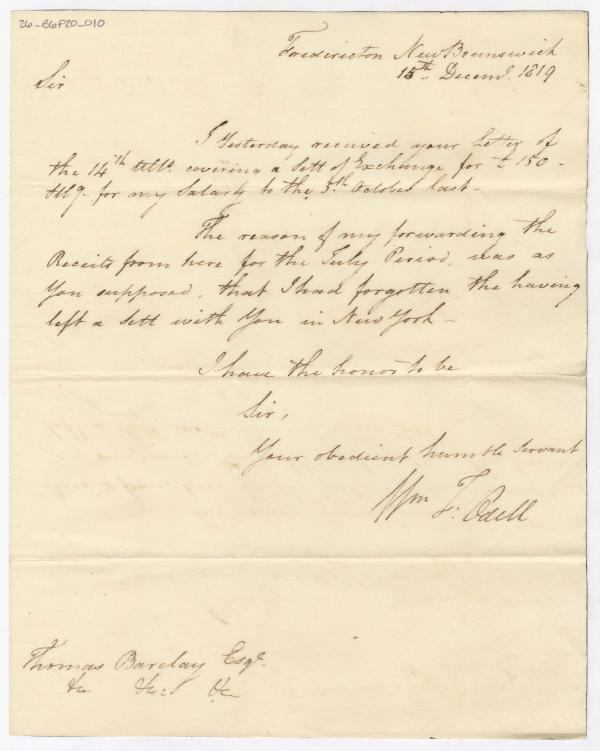 26-B6F20-010
Fredericton New Brunswick
15th Decemr. 1819
Sir
I Yesterday received your Letter of
the 14th Ulto. covering a Sett of Exchange for £ 150 -
Stg. for my Salary to the 5th October last -
The reason of my forwarding the
Receits from here for the July Period, was as
You supposed, that I had forgotten the having
left a Sett with You in New York -
I have the honor to be
Sir,
Your obedient humble Servant
Wm F: Odell
Thomas Barclay Esqr.
&c &c: &c